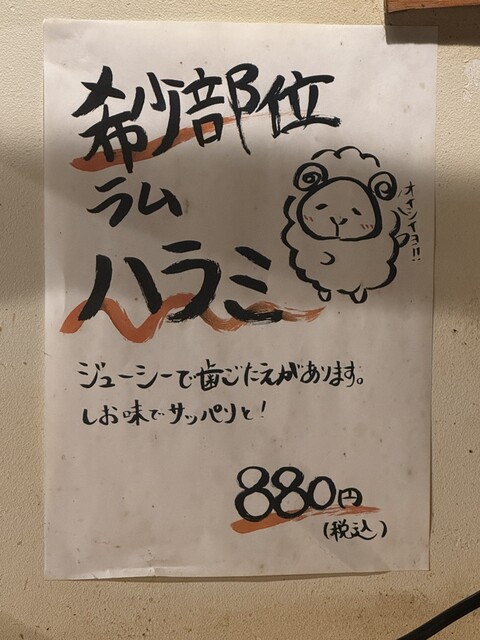 希少部位
ラム
ハラミ
オイシイヨ!!
ジューシーで歯ごたえがあります。
しお味でサッパリと!
880円
(税込)